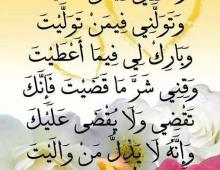 وَتَوَلَّنِي فِيمَنْ تَوَلَّيْتَ
وَبَارِكْ لِي فِيمَا أَعْطَيْتَ
وَقِنِي شَرَّ مَا قَضَيْتَ فَإِنَّكَ
تَقْضِي وَلَا يُقْضَى عَلَيْكَ
وَإِنَّهُ لَا يَذِلُّ مَنْ وَالَيْتَ